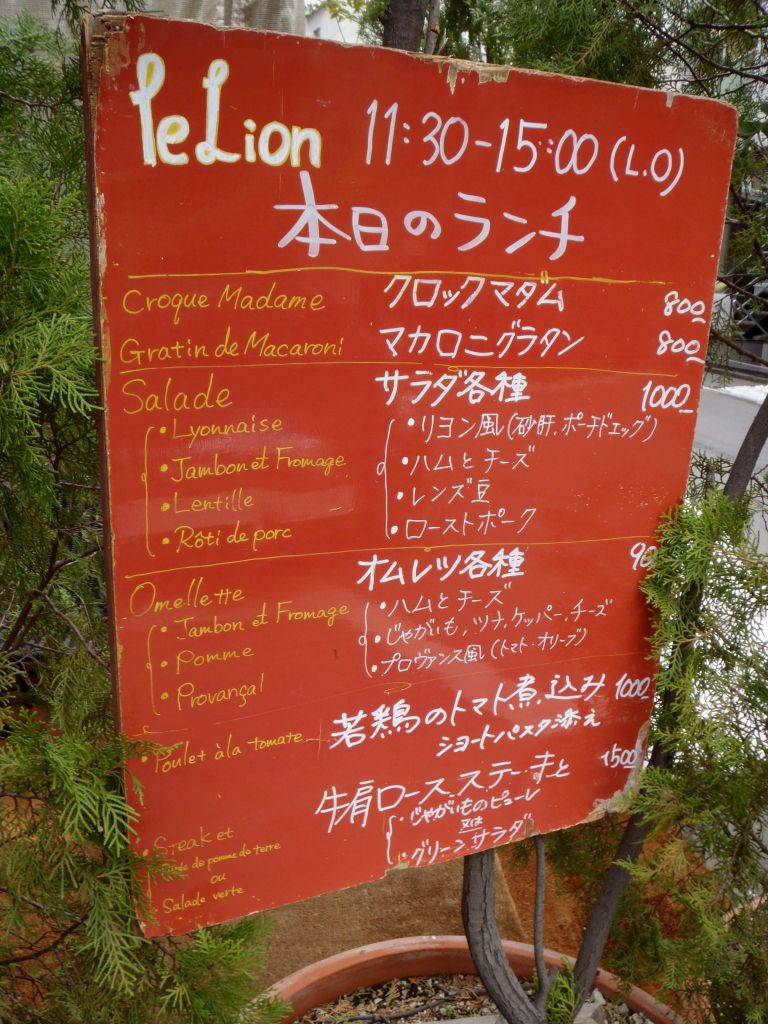 le Lion 11:30-15:00 (L.O)
本日のランチ
Croque Madame クロックマダム 800
Gratin de Macaroni マカロニグラタン 800
Salade サラダ各種 1000
・Lyonnaise ・リヨン風(砂肝,ポーチドエッグ)
・Jambon et Fromage ・ハムとチーズ
・Lentille ・レンズ豆
・Rôti de porc ・ローストポーク
Omellette オムレツ各種
・Jambon et Fromage ・ハムとチーズ
・Pomme ・じゃがいも,ツナ,ケッパー,チーズ
・Provançal ・プロヴァンス風(トマト・オリーブ)
・Poulet à la tomate 若鶏のトマト煮込み 1000
ショートパスタ添え
・Steak et 牛肩ロースステーキと 1500
de pomme de terre ・じゃがいものピューレ
ou 又は
Salade verte ・グリーンサラダ